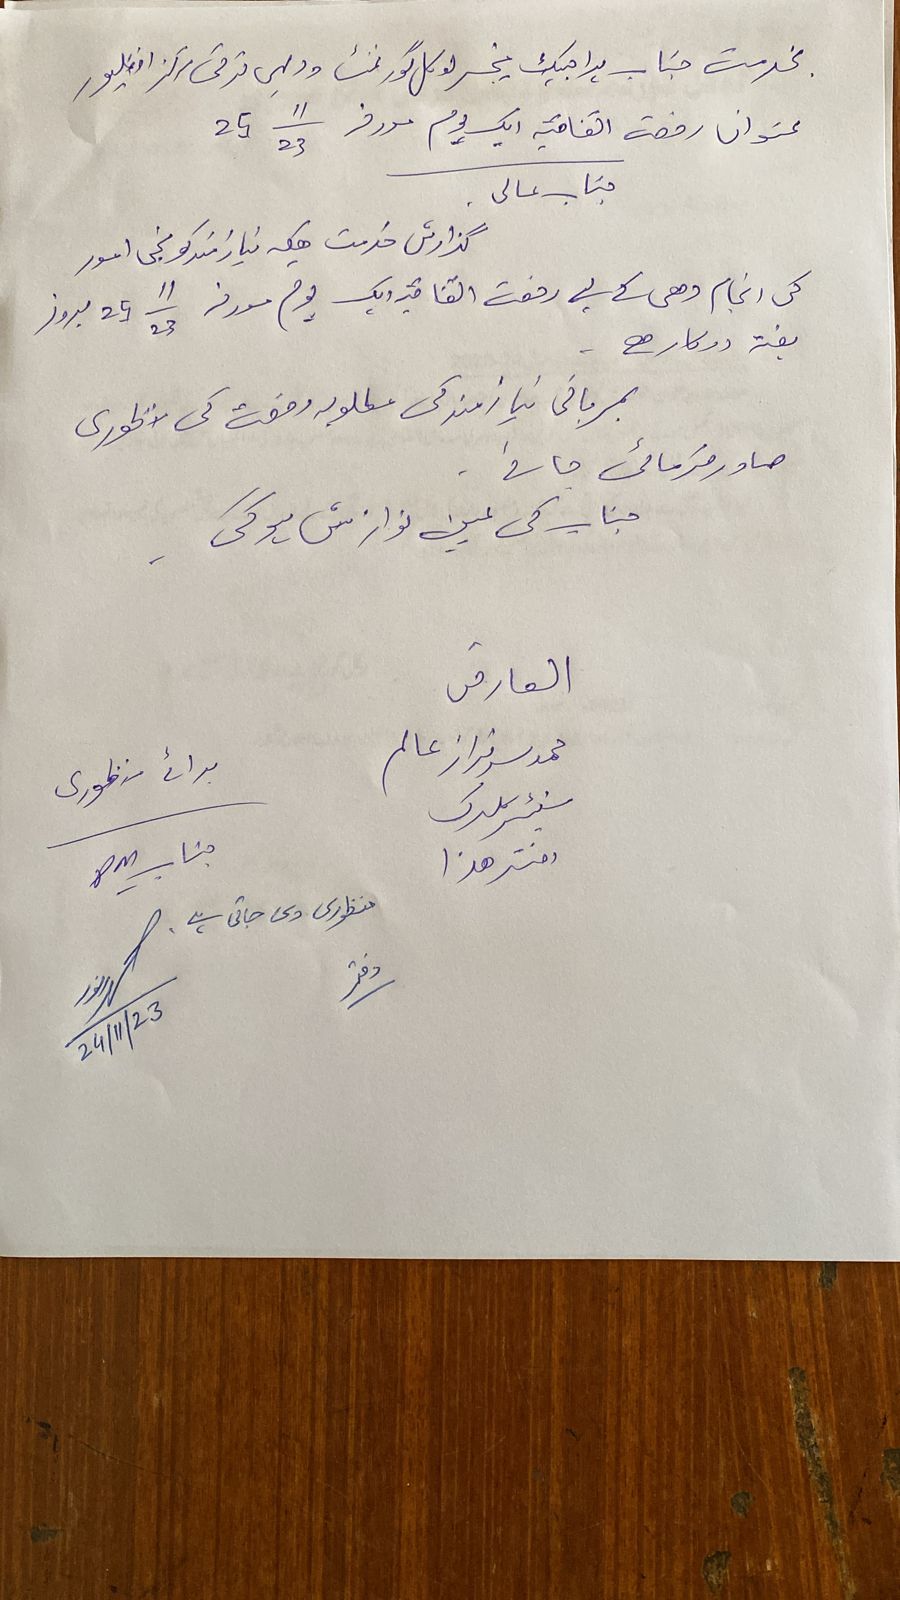 بخدمت جناب پراجیکٹ مینجر لوکل گورنمنٹ و دیہی ترقی مرکز افضلپور
عنوان رخصت اتفاقیہ ایک یوم مورخہ 25 11/23
جناب عالی.
گذارش خدمت ہیکہ نیازمند کو نجی امور
کی انجام دھی کے لیے رخصت اتفاقیہ ایک یوم مورخہ 25 11/23 بروز
ہفتہ درکار ھے ۔
بمہربانی نیازمند کی مطلوبہ رخصت کی منظوری
صادر فرمائی جائے ۔
جناب کی عین نوازش ہوگی ۔
العارض
محمد سرفراز عالم
سینئر کلرک
دفتر ھذا
برائے منظوری
جناب PM
منظوری دی جاتی ہے ۔
دفتر
24/11/23